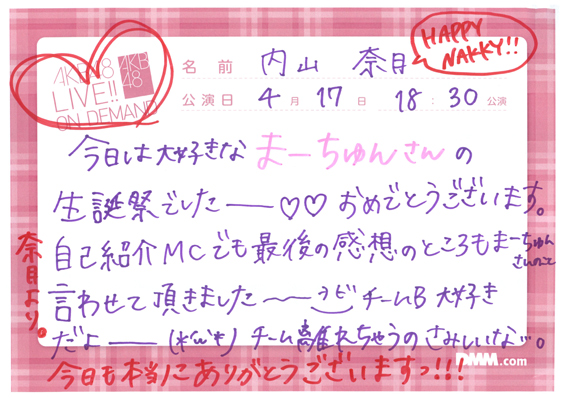 AKB48
LIVE!!
ON DEMAND
AKB
48
名前 内山 奈月
HAPPY
NAKKY!!
公演日 4月17日 18:30公演
今日は大好きな まーちゅんさんの
生誕祭でしたー♡♡ おめでとうございます。
自己紹介MCでも最後の感想のところもまーちゅん
さんのこと
言わせて頂きました〜〜 チームB 大好き
だよー チーム離れちゃうのさみしいなぁ。
今日も本当にありがとうございますっ!!!
奈月より。
DMM.com